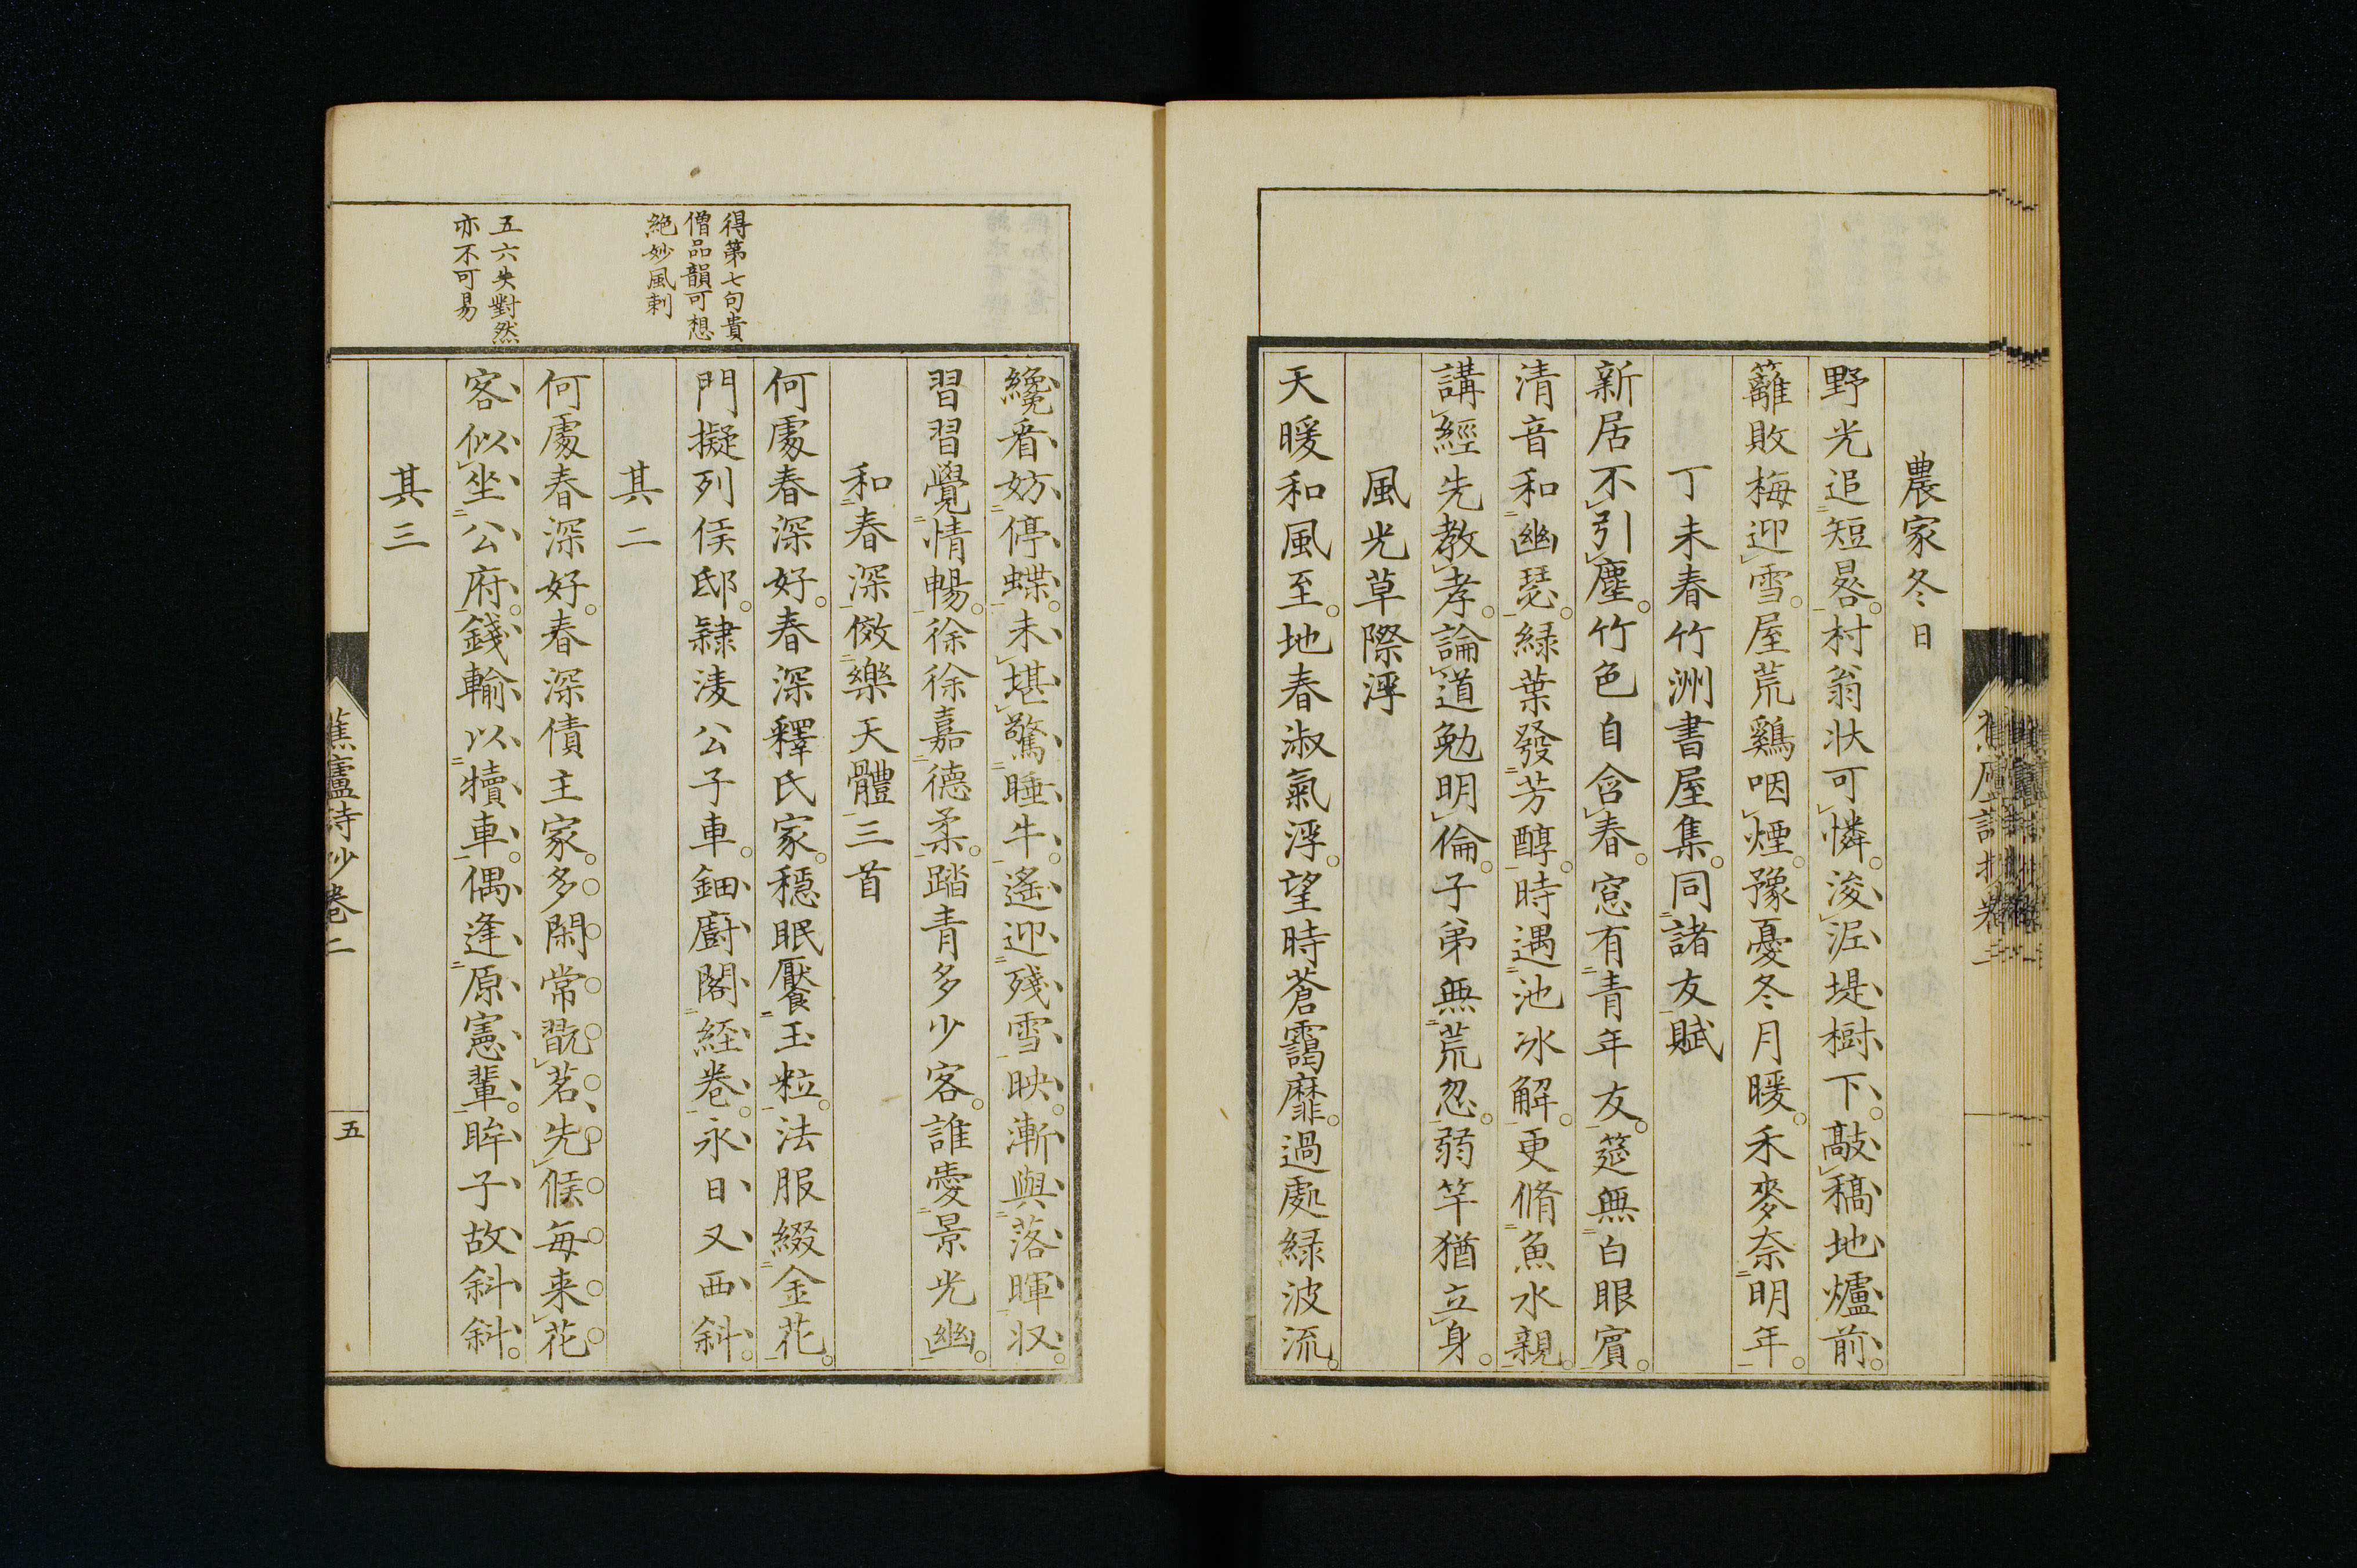 農家冬日
野光追短晷。村翁状可憐。浚泥堤樹下。敲稿地爐前。
籬敗梅迎雪。屋荒鷄咽煙。豫憂冬月暖。禾麥奈明年。
丁未春竹洲書屋集。同諸友賦
新居不引塵。竹色自含春。窓有青年友。筵無白眼賓。
清音和幽瑟。緑葉發芳醇。時遇池冰解。更脩魚水親。
講經先教孝。論道勉明倫。子弟無荒忽。弱竿猶立身。
風光草際浮
天暖和風至。地春淑氣浮。望時蒼靄靡。過處緑波流。
纔看妨停蝶。未堪驚睡牛。遙迎殘雪映。漸與落暉収。
習習覺情暢。徐徐嘉德柔。踏青多少客。誰愛景光幽。
和春深傚樂天體三首
何處春深好。春深釋氏家。穩眠饜玉粒。法服綴金花。
門擬列侯邸。隷淩公子車。鈿廚閣經卷。永日又西斜。
其二
何處春深好。春深債主家。多閑常翫茗。先候每来花
客似坐公府。錢輸以犢車。偶逢原憲輩。眸子故斜斜。
其三
得第七句貴
僧品韻可想
絶妙風刺
五六失對然
亦不可易
蕉廬詩抄卷二
五